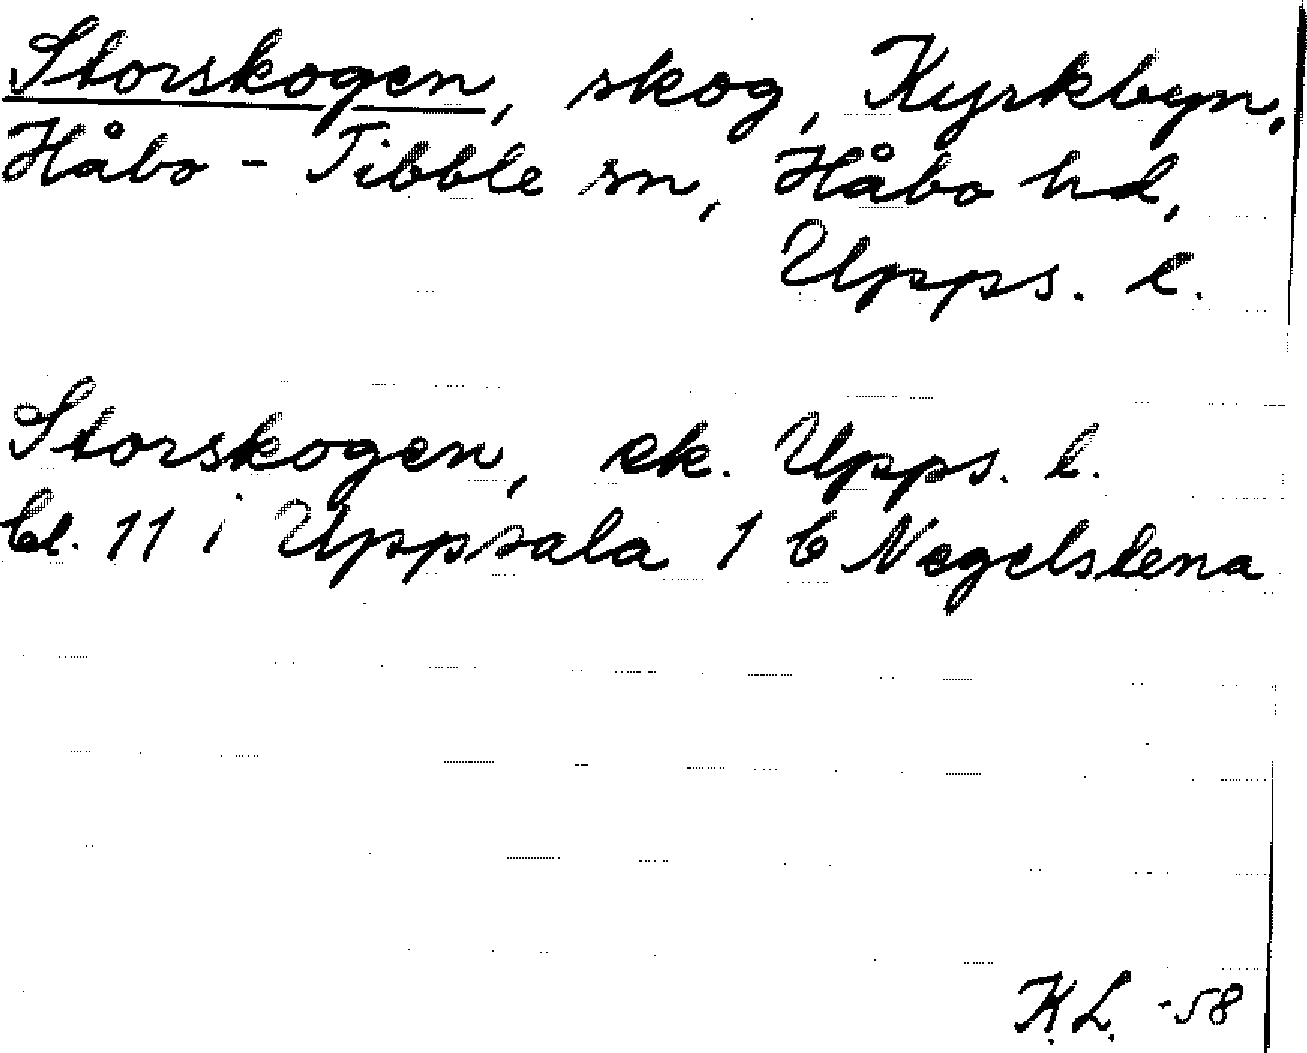 Storskogen, skog, Kyrkbyn,
Håbo-Tibble sn, Håbo hd,
Upps. l.
Storskogen, ek. Upps. l.
bl. 11 i Uppsala 1 b Negelstena
K.L. -58